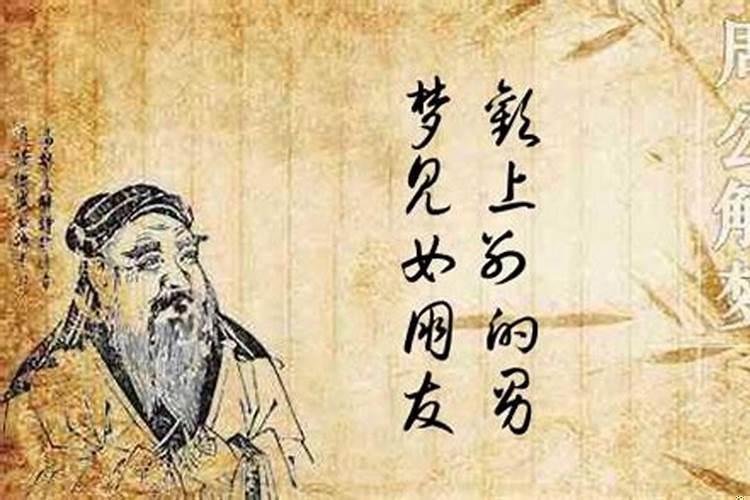 梦见女朋友
歡上别的男
周公解梦